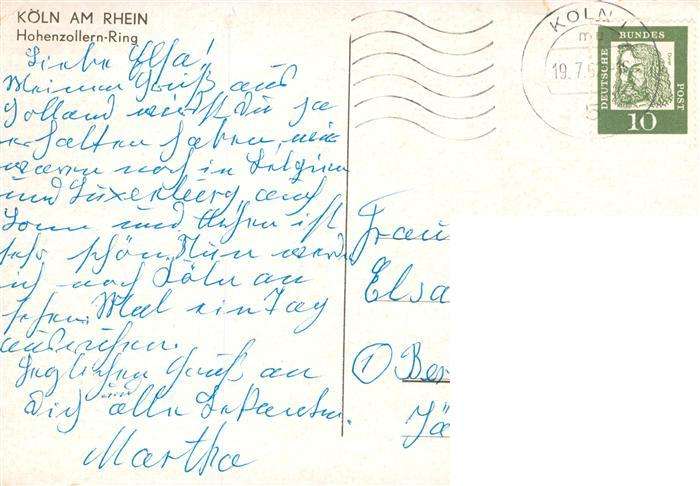 KÖLN AM RHEIN
Hohenzollern-Ring
Liebe Elsa!
Meinen Gruß aus
Holland wirst Du ja
erhalten haben, wir
waren noch in Belgien
und Luxenburg auch
Bonn und
sehr schön. Nun werde
ich noch Köln an
sehen. Mal ein Tag
ausruhen.
Herzlichen Gruß an
Dich und alle Bekannten.
Martha
KÖLN
19.7.6
DEUTSCHE BUNDES POST
10
Frau
Elsa
1 Ber
Jä